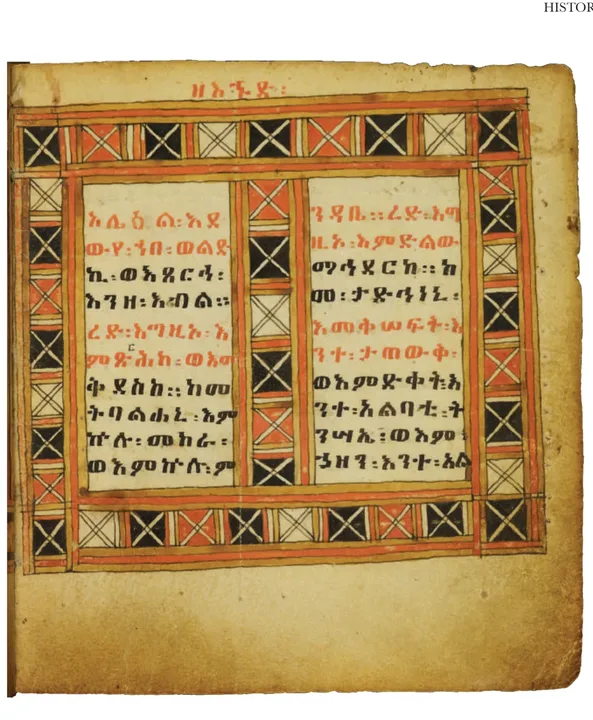 HISTOR
ዘእኁድ፡
አሌዕል፡እደ
ውየ፡ኀበ፡ወልድ
ኪ፡ወእጼርኅ፡
እንዘ፡እብል።
ረድ፡እግዚኦ፡እ
ምጽሕከ፡ወእም
ቅዳስከ።ከመ
ትባልሐኒ፡እም
ኵሉ፡መከራ፡
ወእምኵሉ፡ም
ንዳቤ።ረድ፡እግ
ዚኦ፡እምድልው
ማኅደርከ።ከ
መ፡ታድኅነኒ፡
እመቅሠፍት፡እ
ንተ፡ታጠውቅ፡
ወእምድቀት፡እ
ንተ፡አልባቲ፡ት
ንሣኤ፡ወእም
ኃዘን፡እንተ፡አል